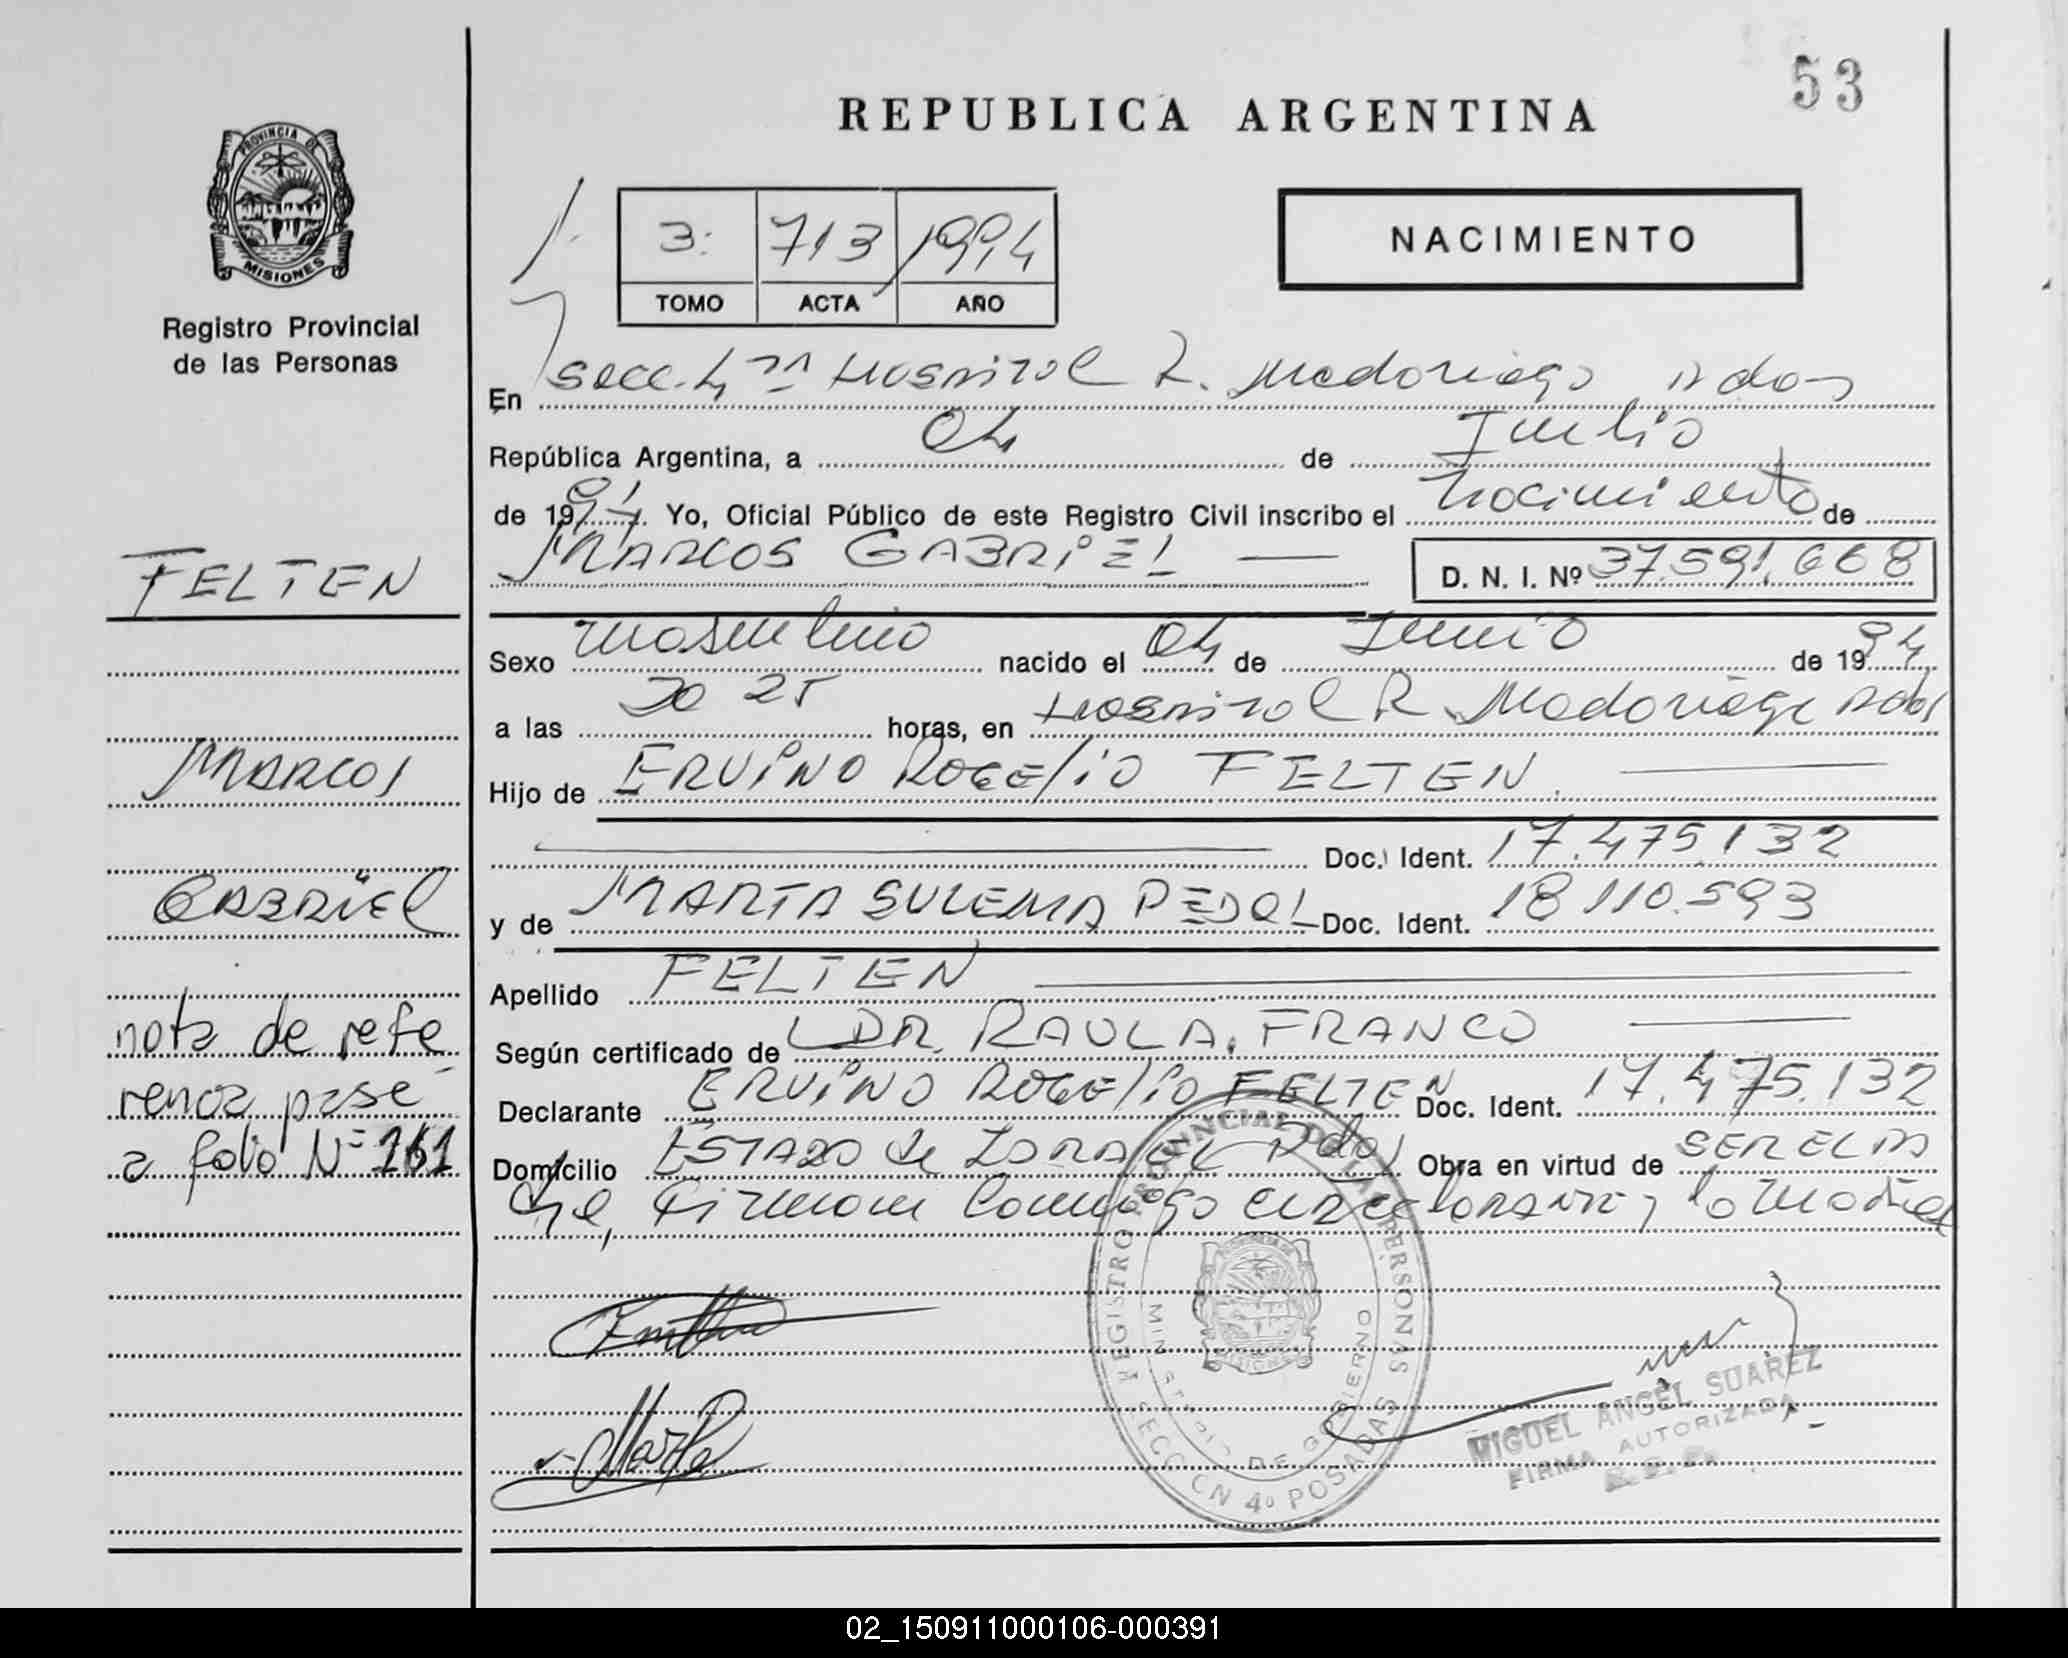 53
REPUBLICA ARGENTINA
PROVINCIA DE
MISIONES
Registro Provincial
de las Personas
3: 713 1994
TOMO ACTA AÑO
NACIMIENTO
En Secc. 4ta Hospital R. Madariaga Pdas
República Argentina, a 04 de Julio
de 1994. Yo, Oficial Público de este Registro Civil inscribo el nacimiento de
MARCOS GABRIEL — D. N. I. Nº 37.591.668
Sexo masculino nacido el 04 de Junio de 1994
a las 20 25 horas, en Hospital R. Madariaga Pdas
Hijo de ERVINO ROGELIO FELTEN
Doc. Ident. 17.475.132
y de MARTA SULEMA PEDOL Doc. Ident. 18.110.593
Apellido FELTEN
Según certificado de DR. RAUL A. FRANCO
Declarante ERVINO ROGELIO FELTEN Doc. Ident. 17.475.132
Domicilio ESTADO de ISRAEL Pdas Obra en virtud de SER EL PA
dre, Firman conmigo el declarante y la madre
FELTEN
MARCOS
GABRIEL
nota de refe
rencia pase
a folio Nº 161
REGISTRO PROVINCIAL DE LAS PERSONAS
MINISTERIO DE GOBIERNO
SECCION 4º POSADAS
MIGUEL ANGEL SUAREZ
FIRMA AUTORIZADA
02_150911000106-000391